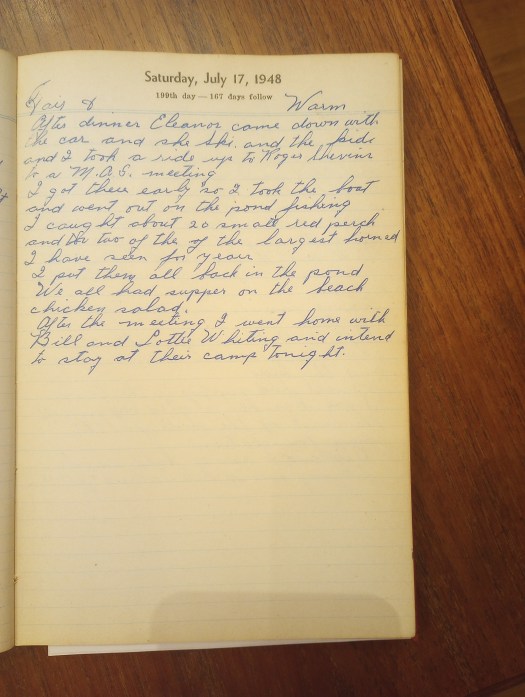 Saturday, July 17, 1948
199th day — 167 days follow
Fair & Warm
After dinner Eleanor came down with
the car and she Ski. and the kids
and I took a ride up to Roger
to a M.A.S. meeting
I got there early so I took the boat
and went out on the pond fishing
I caught about 20 small red perch
and two of the of the largest horned
I have seen for years
I put them all back in the pond
We all had supper on the beach
chicken salad.
After the meeting I went home with
Bill and Lottie Whiting and intend
to stay at their camp tonight.